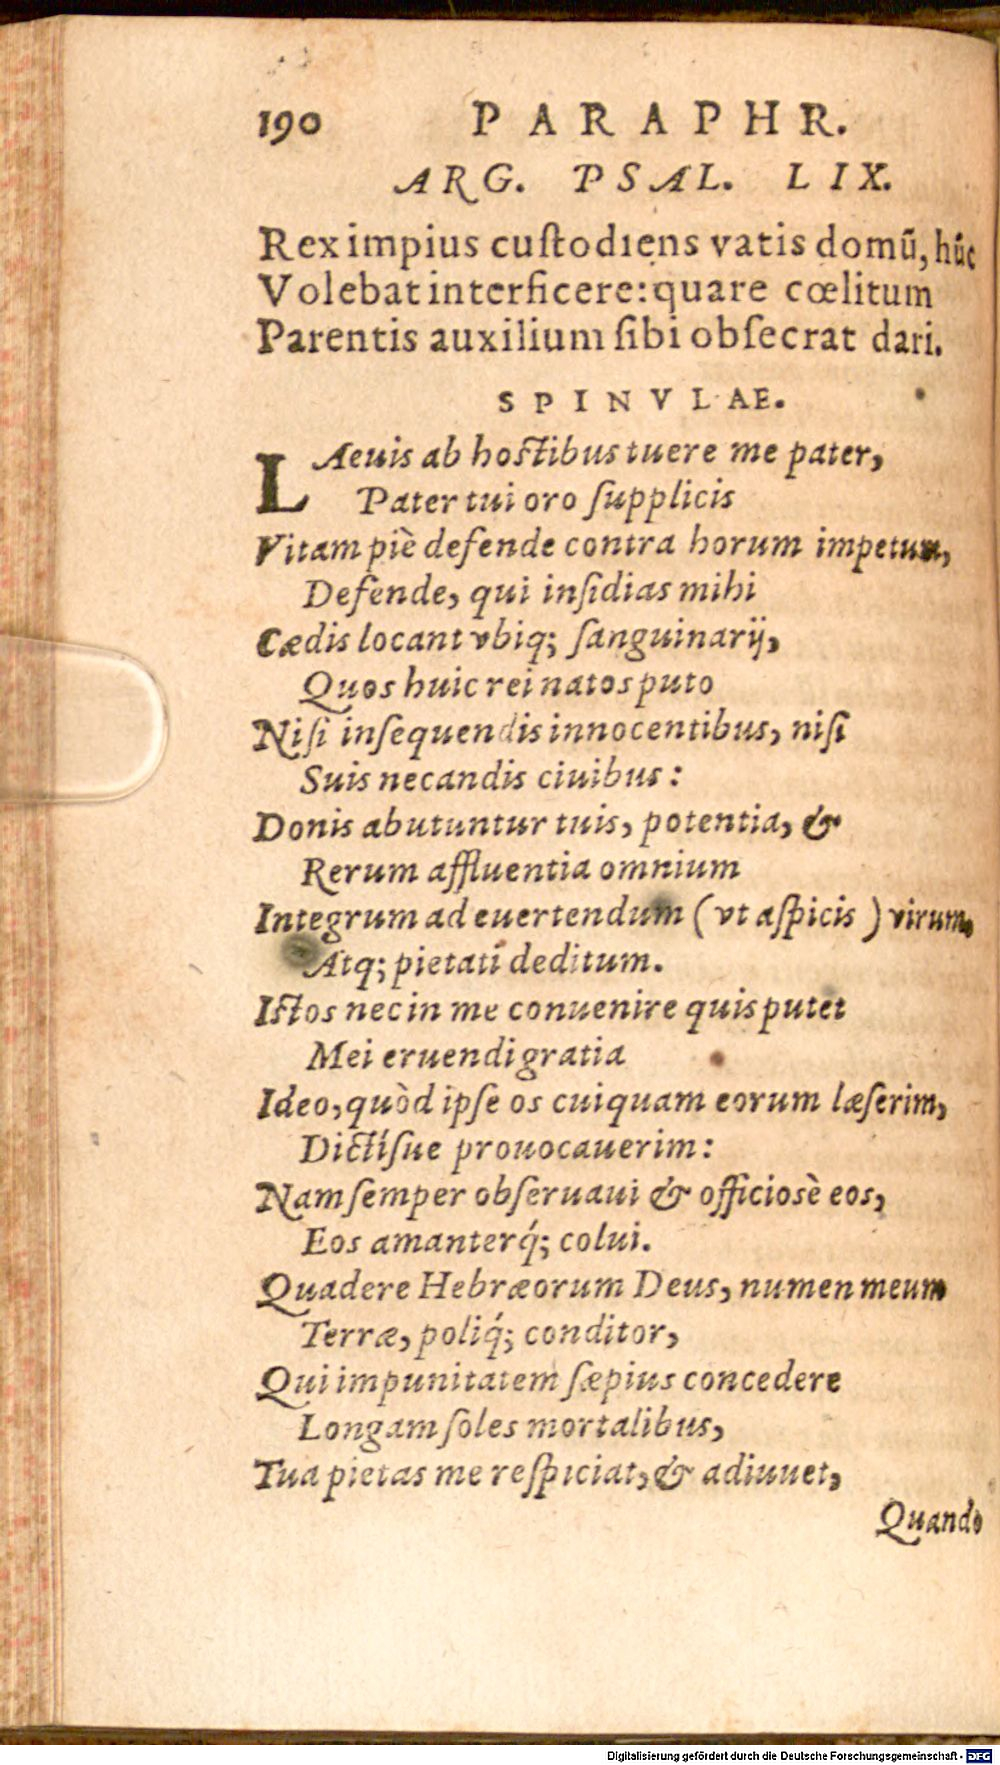 190 PARAPHR.
ARG. PSAL. LIX.
Rex impius cuſtodiens vatis domũ, hũc
Volebat interficere: quare cœlitum
Parentis auxilium ſibi obſecrat dari.
SPINVLAE.
LAeuis ab hoſtibus tuere me pater,
Pater tui oro ſupplicis
Vitam piè defende contra horum impetum,
Defende, qui inſidias mihi
Cædis locant vbiq; ſanguinarij,
Quos huic rei natos puto
Niſi inſequendis innocentibus, niſi
Suis necandis ciuibus:
Donis abutuntur tuis, potentia, &
Rerum affluentia omnium
Integrum ad euertendum (vt aſpicis) virum,
Atq; pietati deditum.
Iſtos nec in me conuenire quis putet
Mei eruendi gratia
Ideo, quòd ipſe os cuiquam eorum læſerim,
Dictíſue prouocauerim:
Nam ſemper obſeruaui & officioſè eos,
Eos amanterq́; colui.
Quadere Hebræorum Deus, numen meum
Terræ, poliq́; conditor,
Qui impunitatem ſæpius concedere
Longam ſoles mortalibus,
Tua pietas me reſpiciat, & adiuuet,
Quando
Digitalisierung gefördert durch die Deutsche Forschungsgemeinschaft - DFG